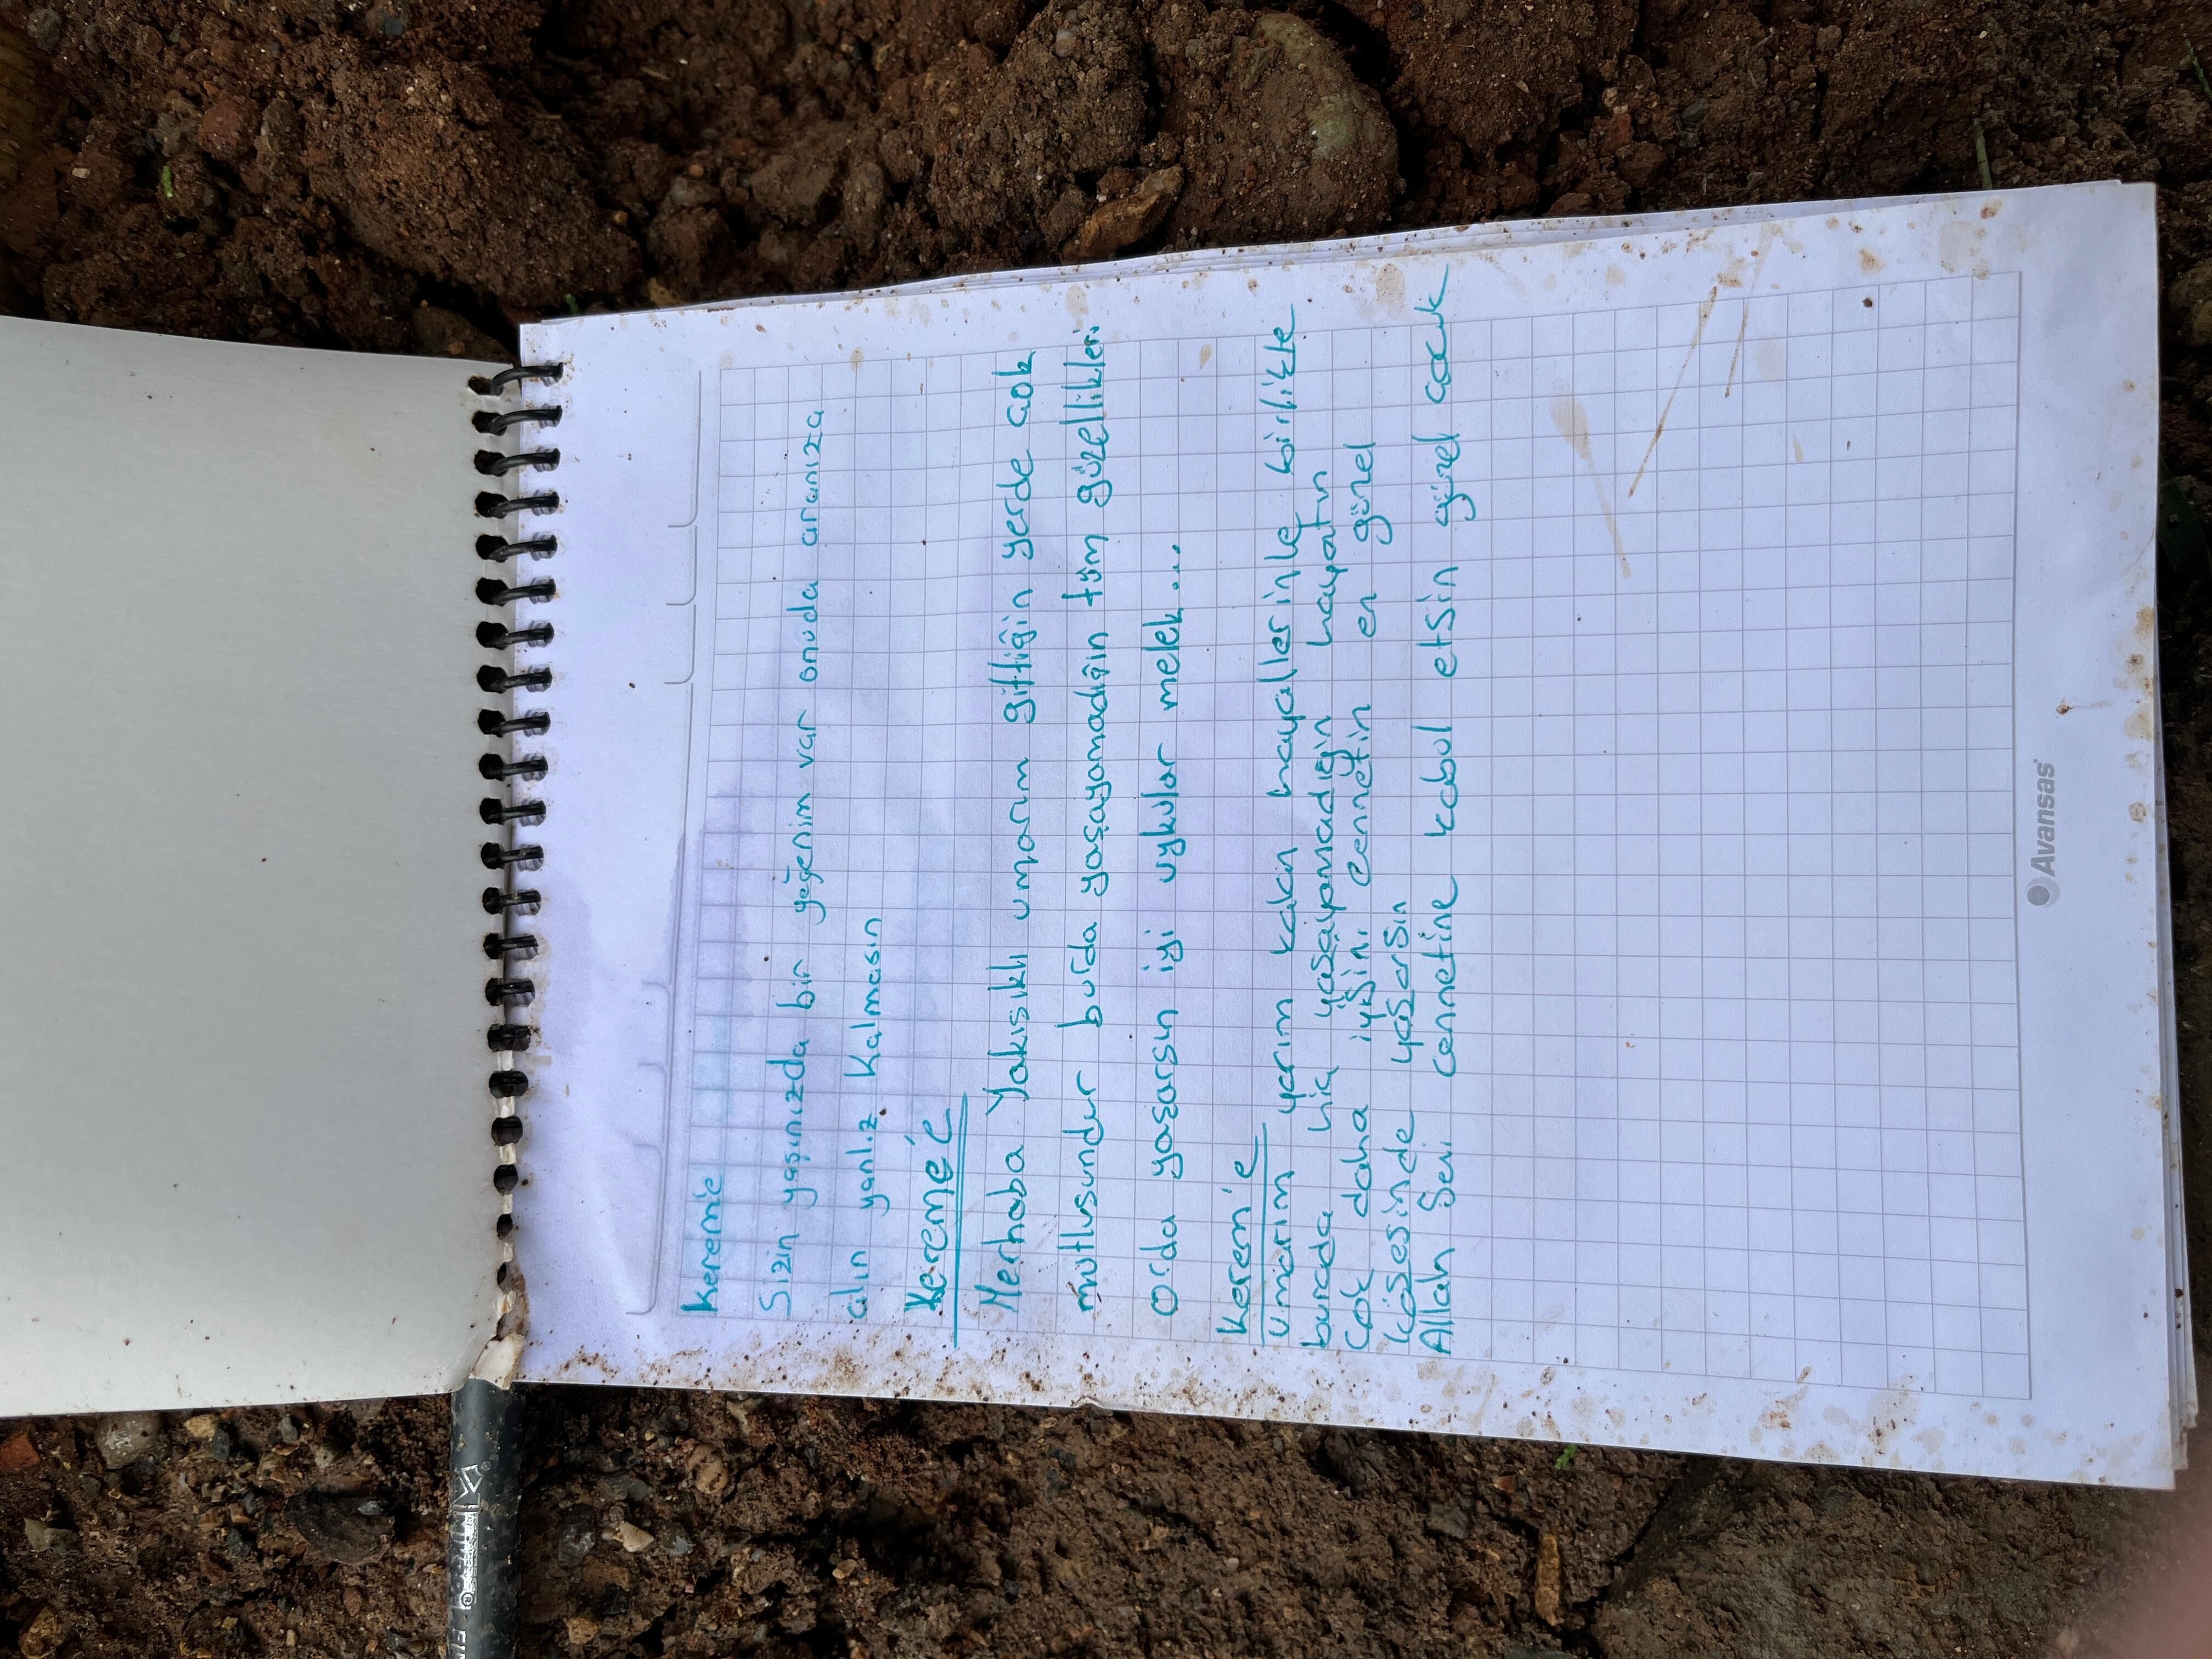 Kerem'e
Sizin yaşınızda bir yeğenim var onuda aranıza
alın yanlız Kalmasın
Kerem'e
Merhaba Yakısıklı umarım gittiğin yerde çok
mutlusundur burda yaşayamadığın tüm güzellikleri
Orda yaşarsın iyi uykular melek...
Kerem'e
Umarım yarım kalan hayallerinle birlikte
burada hiç yaşayamadığın hayatın
Çok daha iyisini cennetin en güzel
köşesinde yaşarsın
Allah Seni cennetine kabul etsin güzel çocuk
Avansas